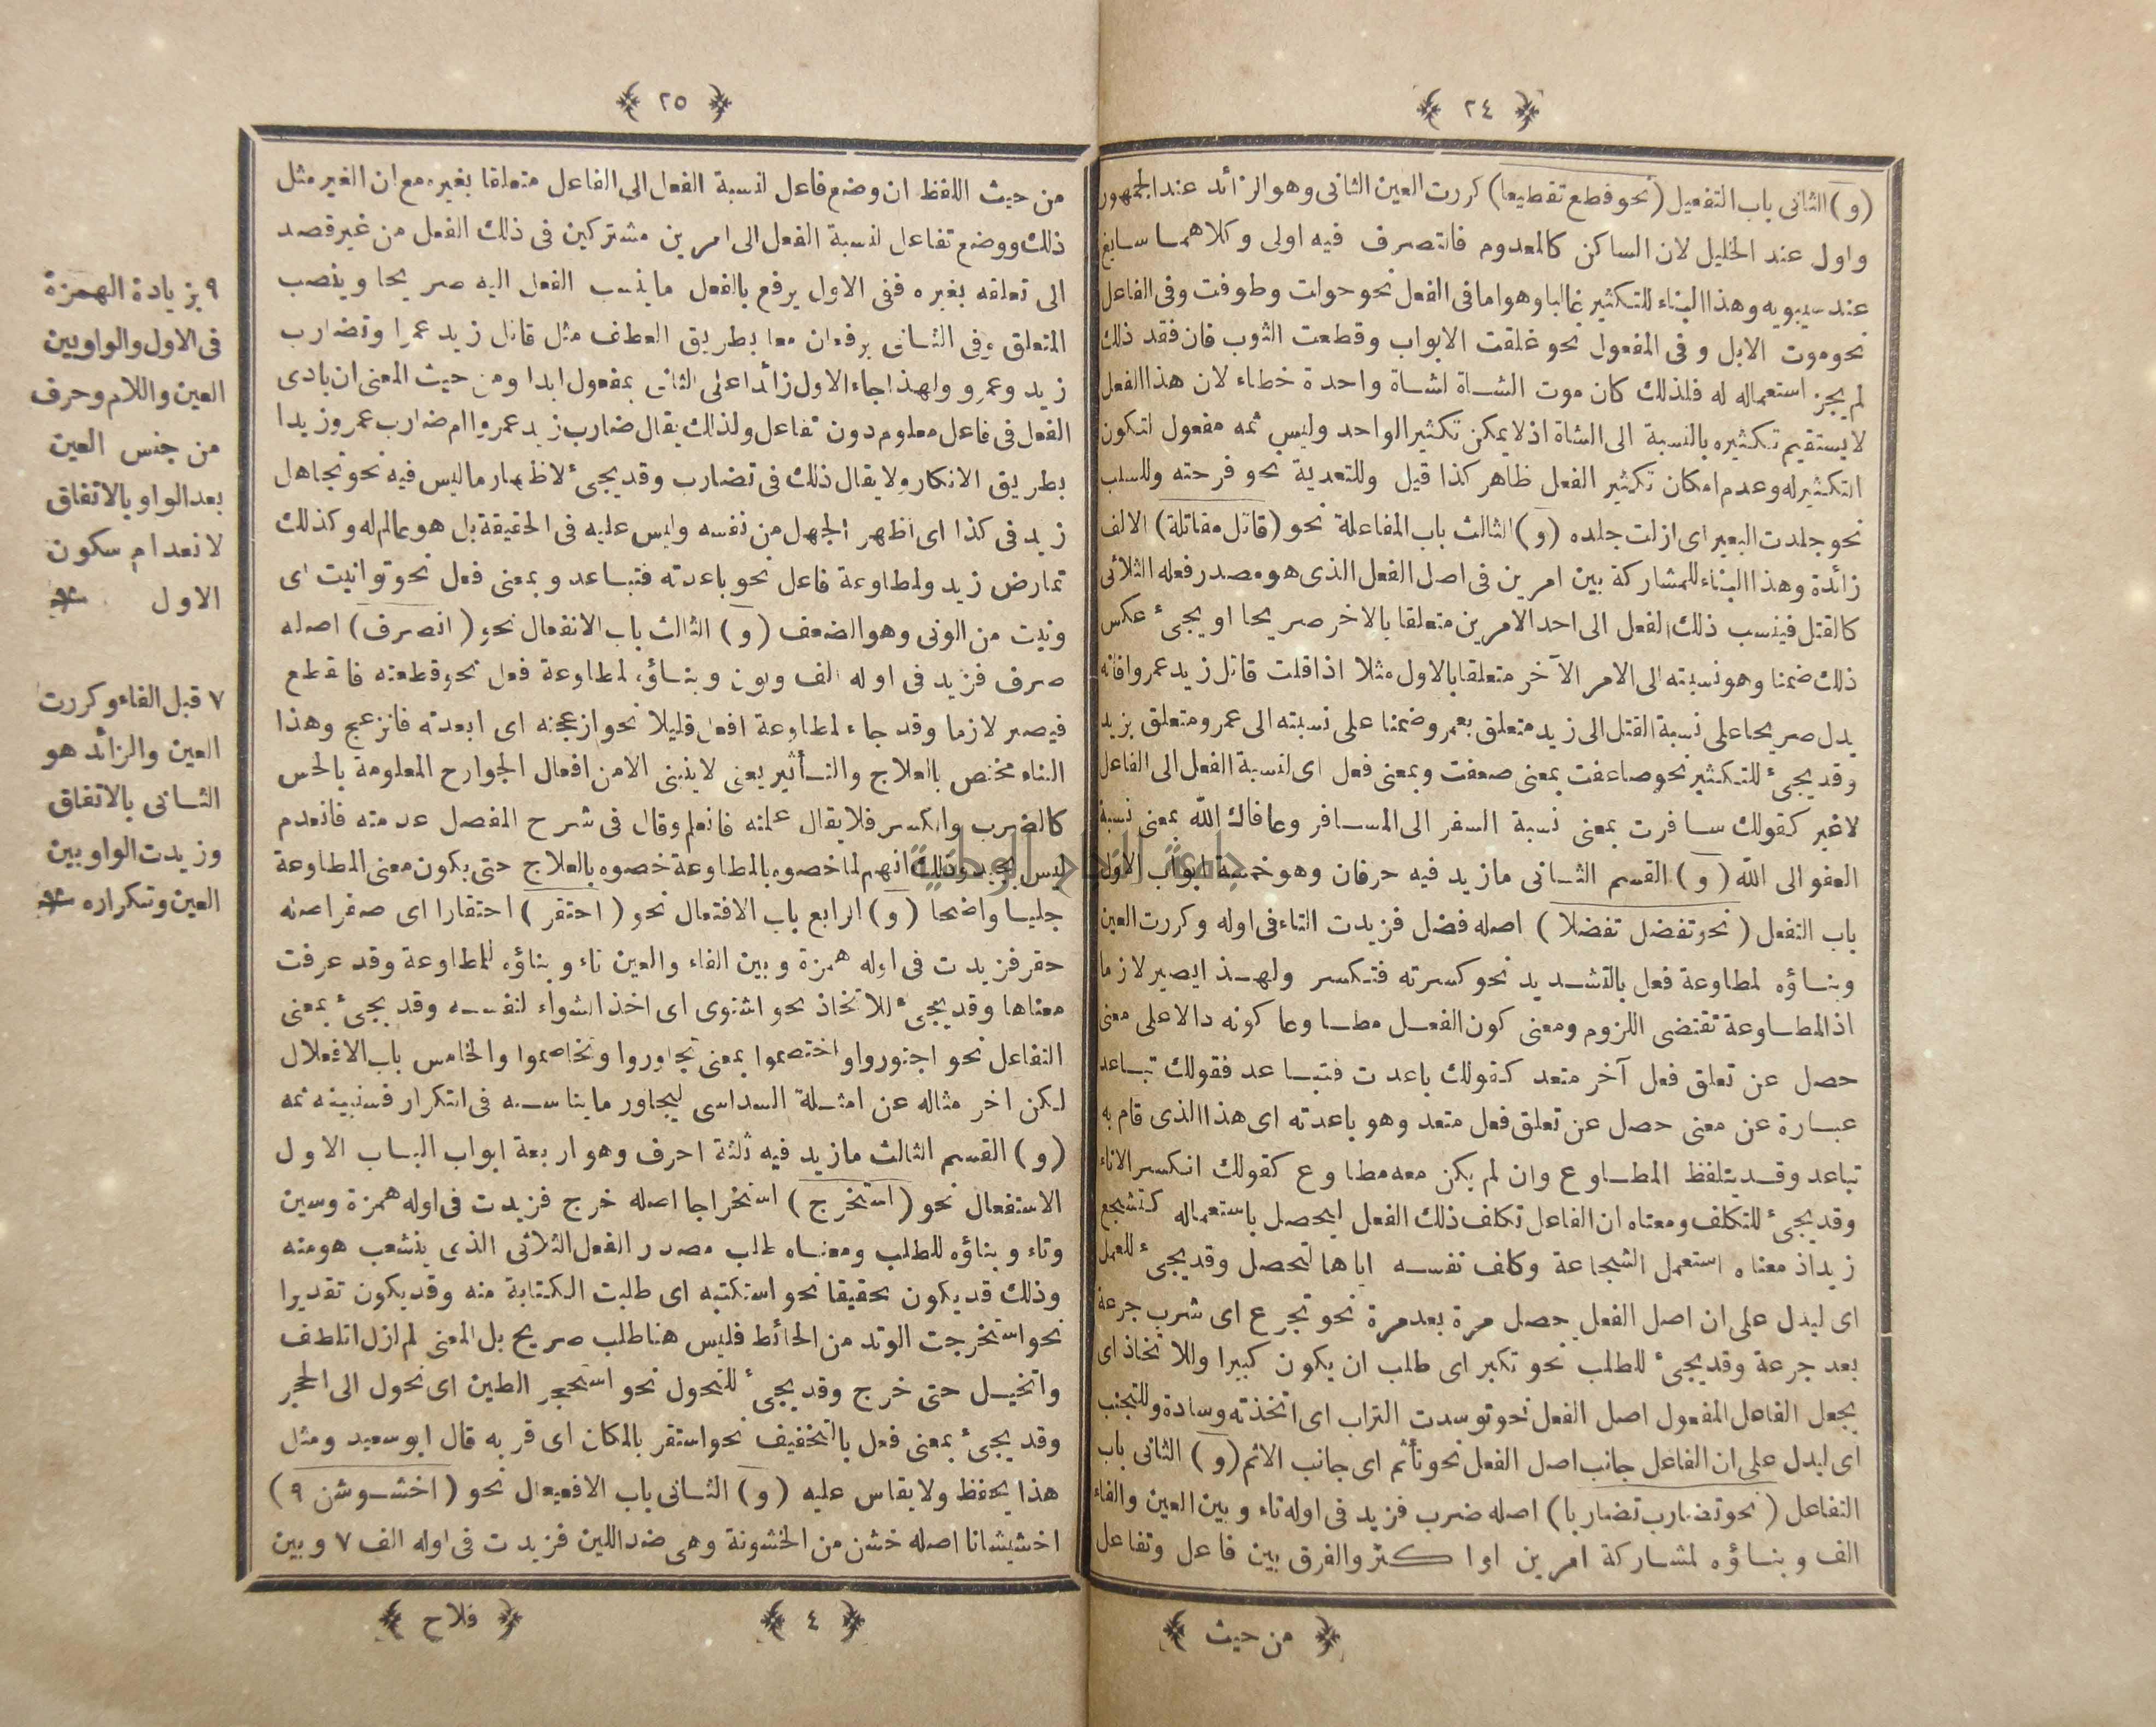 ﴿ ٢٤ ﴾
(و) الثانى باب التفعيل (نحو قطع تقطيعا) كررت العين الثانى وهو الزائد عند الجمهور
واول عند الخليل لان الساكن كالمعدوم فالتصرف فيه اولى وكلاهما سايغ
عند سيبويه وهذا البناء للتكثير غالبا وهو اما فى الفعل نحو حولت وطوفت وفى الفاعل
نحو موت الابل وفى المفعول نحو غلقت الابواب وقطعت الثوب فان فقد ذلك
لم يجز استعماله له فلذلك كان موت الشاة لشاة واحدة خطاء لان هذا الفعل
لا يستقيم تكثيره بالنسبة الى الشاة اذ لا يمكن تكثير الواحد وليس ثمه مفعول لتكون
التكثير له وعدم امكان تكثير الفعل ظاهر كذا قيل وللتعدية نحو فرحته وللسلب
نحو جلدت البعير اى ازلت جلده (و) الثالث باب المفاعلة نحو (قاتل مقاتلة) الالف
زائدة وهذا البناء للمشاركة بين امرين فى اصل الفعل الذى هو مصدر فعله الثلاثى
كالقتل فينسب ذلك الفعل الى احد الامرين متعلقا بالاخر صريحا او يجئ عكس
ذلك ضمنا وهو نسبته الى الامر الآخر متعلقا بالاول مثلا اذا قلت قاتل زيد عمروا فانه
يدل صريحا على نسبة القتل الى زيد متعلق بعمرو ضمنا على نسبته الى عمر ومتعلق بزيد
وقد يجئ للتكثير نحو ضاعفت بمعنى ضعفت وبمعنى فعل اى لنسبة الفعل الى الفاعل
لا غير كقولك سافرت بمعنى نسبة السفر الى المسافر وعافاك الله بمعنى نسبة
العفو الى الله (و) القسم الثانى ما زيد فيه حرفان وهو خمسة ابواب الاول
باب التفعل (نحو تفضل تفضلا) اصله فضل فزيدت التاء فى اوله وكررت العين
وبناؤه لمطاوعة فعل بالتشديد نحو كسرته فتكسر ولهذا ايصير لازما
اذ المطاوعة تقتضى اللزوم ومعنى كون الفعل مطاوعا كونه دالا على معنى
حصل عن تعلق فعل آخر متعد كقولك باعدت فتباعد فقولك تباعد
عبارة عن معنى حصل عن تعلق فعل متعد وهو باعدته اى هذا الذى قام به
تباعد وقد يتلفظ المطاوع وان لم يكن معه مطاوع كقولك انكسر الاناء
وقد يجئ للتكلف ومعناه ان الفاعل تكلف ذلك الفعل ليحصل باستعماله كتشجع
زيد اذ معناه استعمل الشجاعة وكلف نفسه اياها لتحصل وقد يجئ للعمل
اى ليدل على ان اصل الفعل حصل مرة بعد مرة نحو تجرع اى شرب جرعة
بعد جرعة وقد يجئ للطلب نحو تكبر اى طلب ان يكون كبيرا وللاتخاذ اى
يجعل الفاعل المفعول اصل الفعل نحو توسدت التراب اى اتخذته وسادة وللتجنب
اى ليدل على ان الفاعل جانب اصل الفعل نحو تأثم اى جانب الاثم (و) الثانى باب
التفاعل (نحو تضارب تضاربا) اصله ضرب فزيد فى اوله تاء وبين العين والفاء
الف وبناؤه لمشاركة امرين او اكثر والفرق بين فاعل وتفاعل
﴿ من حيث ﴾
﴿ ٢٥ ﴾
من حيث اللفظ ان وضع فاعل لنسبة الفعل الى الفاعل متعلقا بغيره مع ان الغير مثل
ذلك ووضع تفاعل لنسبة الفعل الى امرين مشتركين فى ذلك الفعل من غير قصد
الى تعلقه بغيره ففى الاول يرفع بالفعل ما ينسب الفعل اليه صريحا وينصب
المتعلق وفى الثانى يرفعان معا بطريق العطف مثل قاتل زيد عمرا وتضارب
زيد وعمرو ولهذا جاء الاول زائدا على الثانى بمفعول ابدا ومن حيث المعنى ان بادى
الفعل فى فاعل معلوم دون تفاعل ولذلك يقال ضارب زيد عمروا ام ضارب عمرو زيدا
بطريق الانكار ولا يقال ذلك فى تضارب وقد يجئ لاظهار ما ليس فيه نحو تجاهل
زيد فى كذا اى اظهر الجهل من نفسه وليس عليه فى الحقيقة بل هو عالم له وكذلك
تمارض زيد ولمطاوعة فاعل نحو باعدته فتباعد وبمعنى فعل نحو توانيت اى
ونيت من الونى وهو الضعف (و) الثالث باب الانفعال نحو (انصرف) اصله
صرف فزيد فى اوله الف ونون وبناؤه لمطاوعة فعل نحو قطعته فانقطع
فيصير لازما وقد جاء لمطاوعة افعل قليلا نحو ازعجته اى ابعدته فانزعج وهذا
البناء مختص بالعلاج والتأثير يعنى لا يبنى الا من افعال الجوارح المعلومة بالحس
كالضرب والكسر فلا يقال علمته فانعلم وقال فى شرح المفصل عدمته فانعدم
ليس بجيد وذلك انهم لما خصوه بالمطاوعة خصوه بالعلاج حتى يكون معنى المطاوعة
جليا واضحا (و) الرابع باب الافتعال نحو (احتقر) احتقارا اى صغر اصله
حقر فزيدت فى اوله همزة وبين الفاء والعين تاء وبناؤه للمطاوعة وقد عرفت
معناها وقد يجئ للاتخاذ نحو اشتوى اى اخذ الشواء لنفسه وقد يجئ بمعنى
التفاعل نحو اجتوروا واختصموا بمعنى تجاوروا وتخاصموا والخامس باب الافعلال
لكن اخر مثاله عن امثلة السداسى ليجاور ما يناسبه فى التكرار فسنبينه ثمه
(و) القسم الثالث ما زيد فيه ثلثة احرف وهو اربعة ابواب الباب الاول
الاستفعال نحو (استخرج) استخراجا اصله خرج فزيدت فى اوله همزة وسين
وتاء وبناؤه للطلب ومعناه طلب مصدر الفعل الثلاثى الذى ينشعب هو منه
وذلك قد يكون تحقيقا نحو استكتبه اى طلبت الكتابة منه وقد يكون تقديرا
نحو استخرجت الوتد من الحائط فليس هنا طلب صريح بل المعنى لم ازل اتلطف
واتخيل حتى خرج وقد يجئ للتحول نحو استحجر الطين اى تحول الى الحجر
وقد يجئ بمعنى فعل بالتخفيف نحو استقر بالمكان اى قر به قال ابو سعيد ومثل
هذا يحفظ ولا يقاس عليه (و) الثانى باب الافعيعال نحو (اخشوشن ٩)
اخشيشانا اصله خشن من الخشونة وهى ضد اللين فزيدت فى اوله الف ٧ وبين
٩ بزيادة الهمزة
فى الاول والواو بين
العين واللام وحرف
من جنس العين
بعد الواو بالاتفاق
لانعدام سكون
الاول
٧ قبل الفاء وكررت
العين والزائد هو
الثانى بالاتفاق
وزيدت الواو بين
العين وتكراره
﴿ ٤ ﴾
﴿ فلاح ﴾